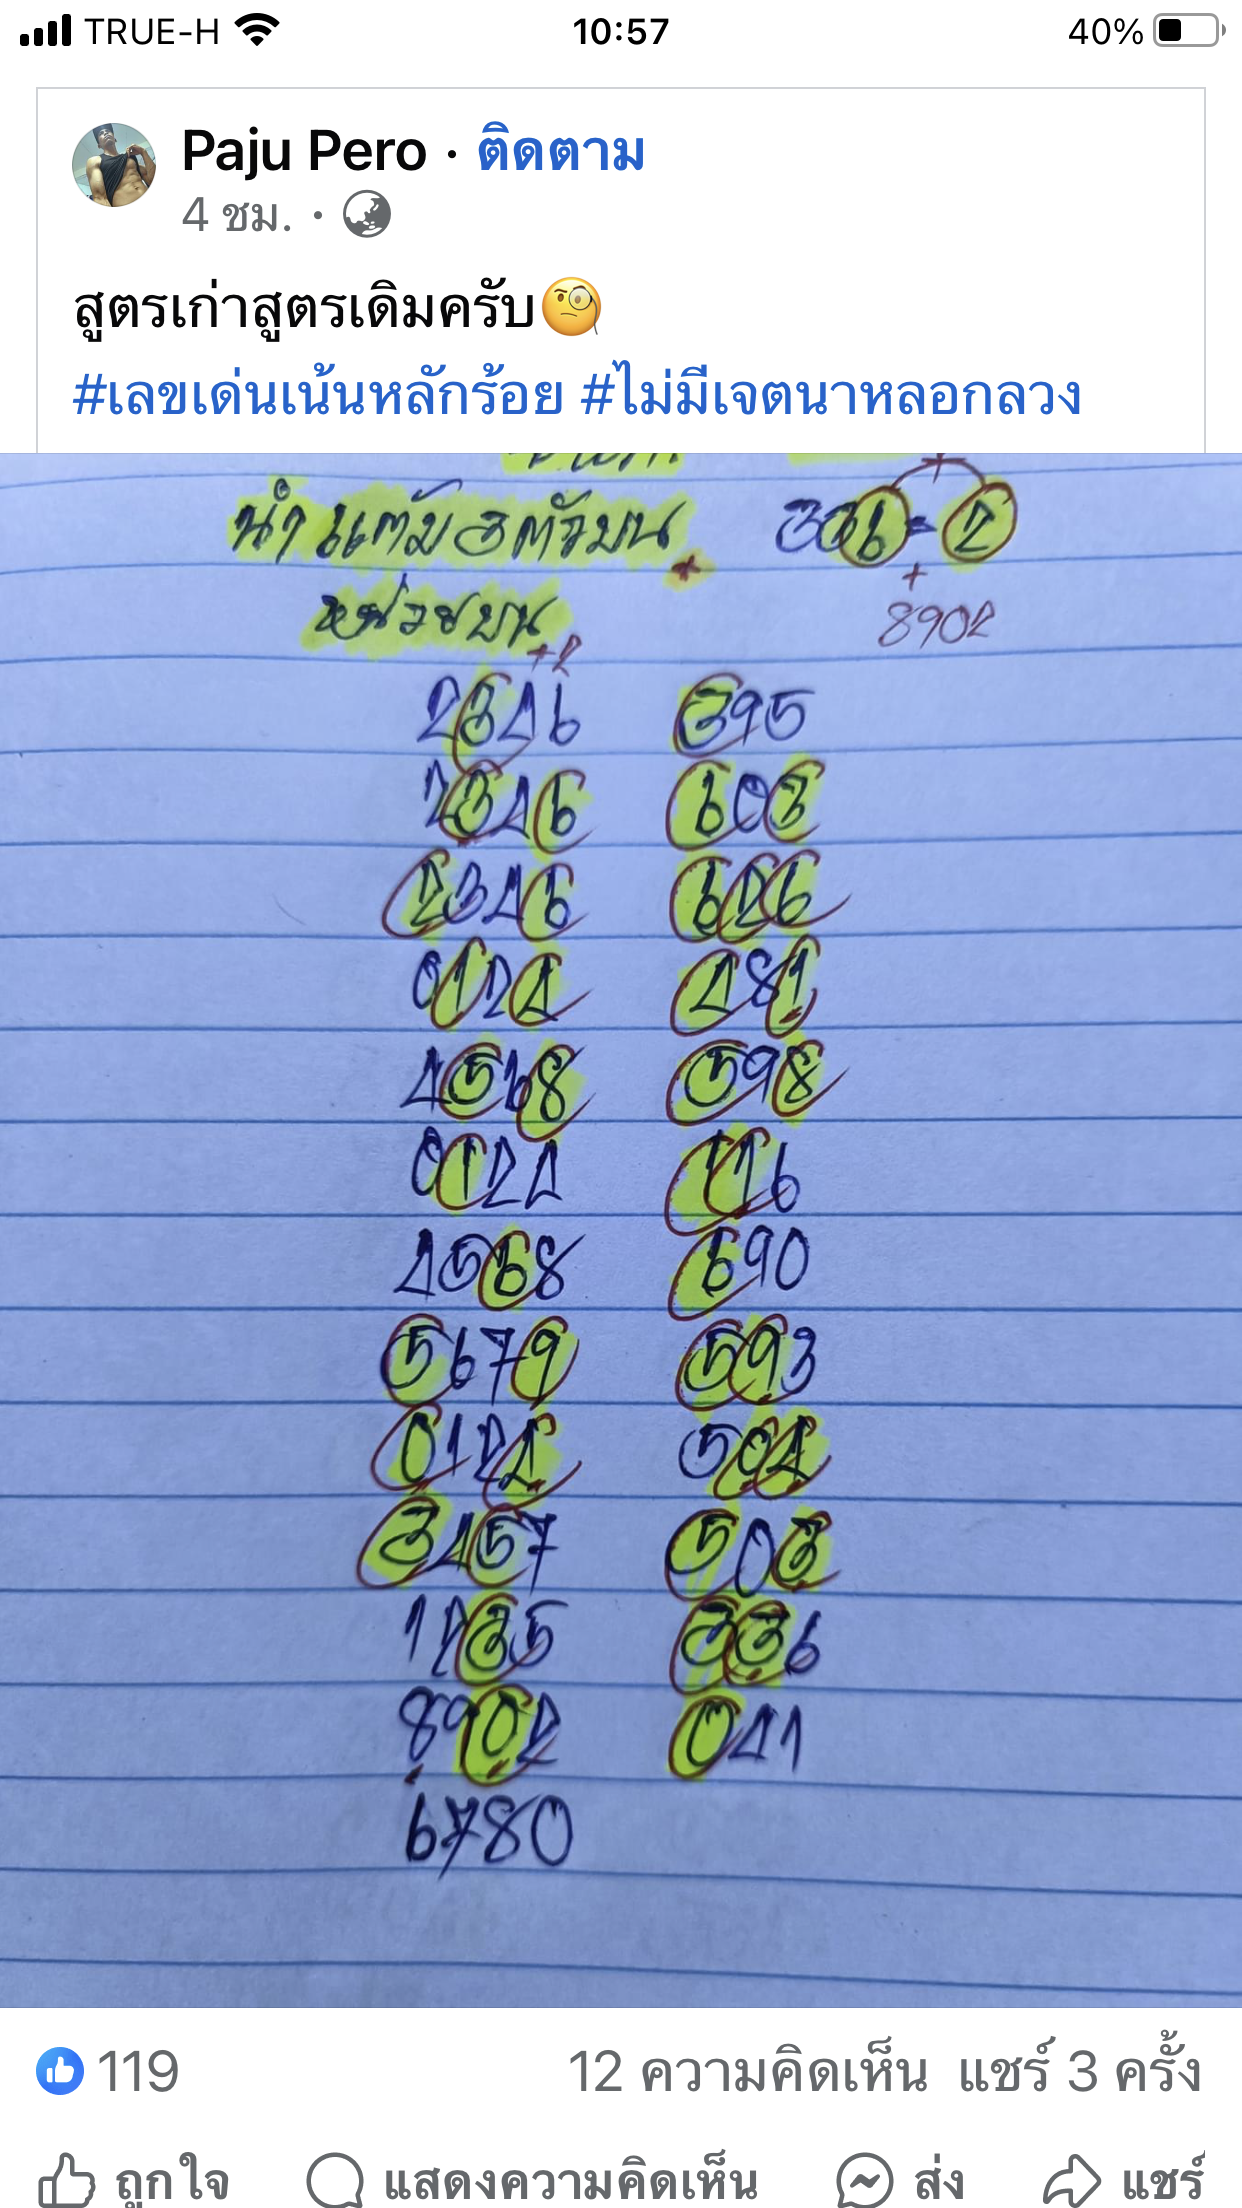 TRUE-H 10:57 40%
Paju Pero · ติดตาม
4 ชม. ·
สูตรเก่าสูตรเดิมครับ🧐
#เลขเด่นเน้นหลักร้อย #ไม่มีเจตนาหลอกลวง
นำแต้ม 3 ตัวบน 336 = 2
+
หน่วยบน 8902
+2
2346 395
2346 603
2346 626
0124 481
4568 598
0124 116
4568 690
5679 593
0124 504
3457 503
1235 336
8902 041
6780
119 12 ความคิดเห็น แชร์ 3 ครั้ง
ถูกใจ แสดงความคิดเห็น ส่ง แชร์